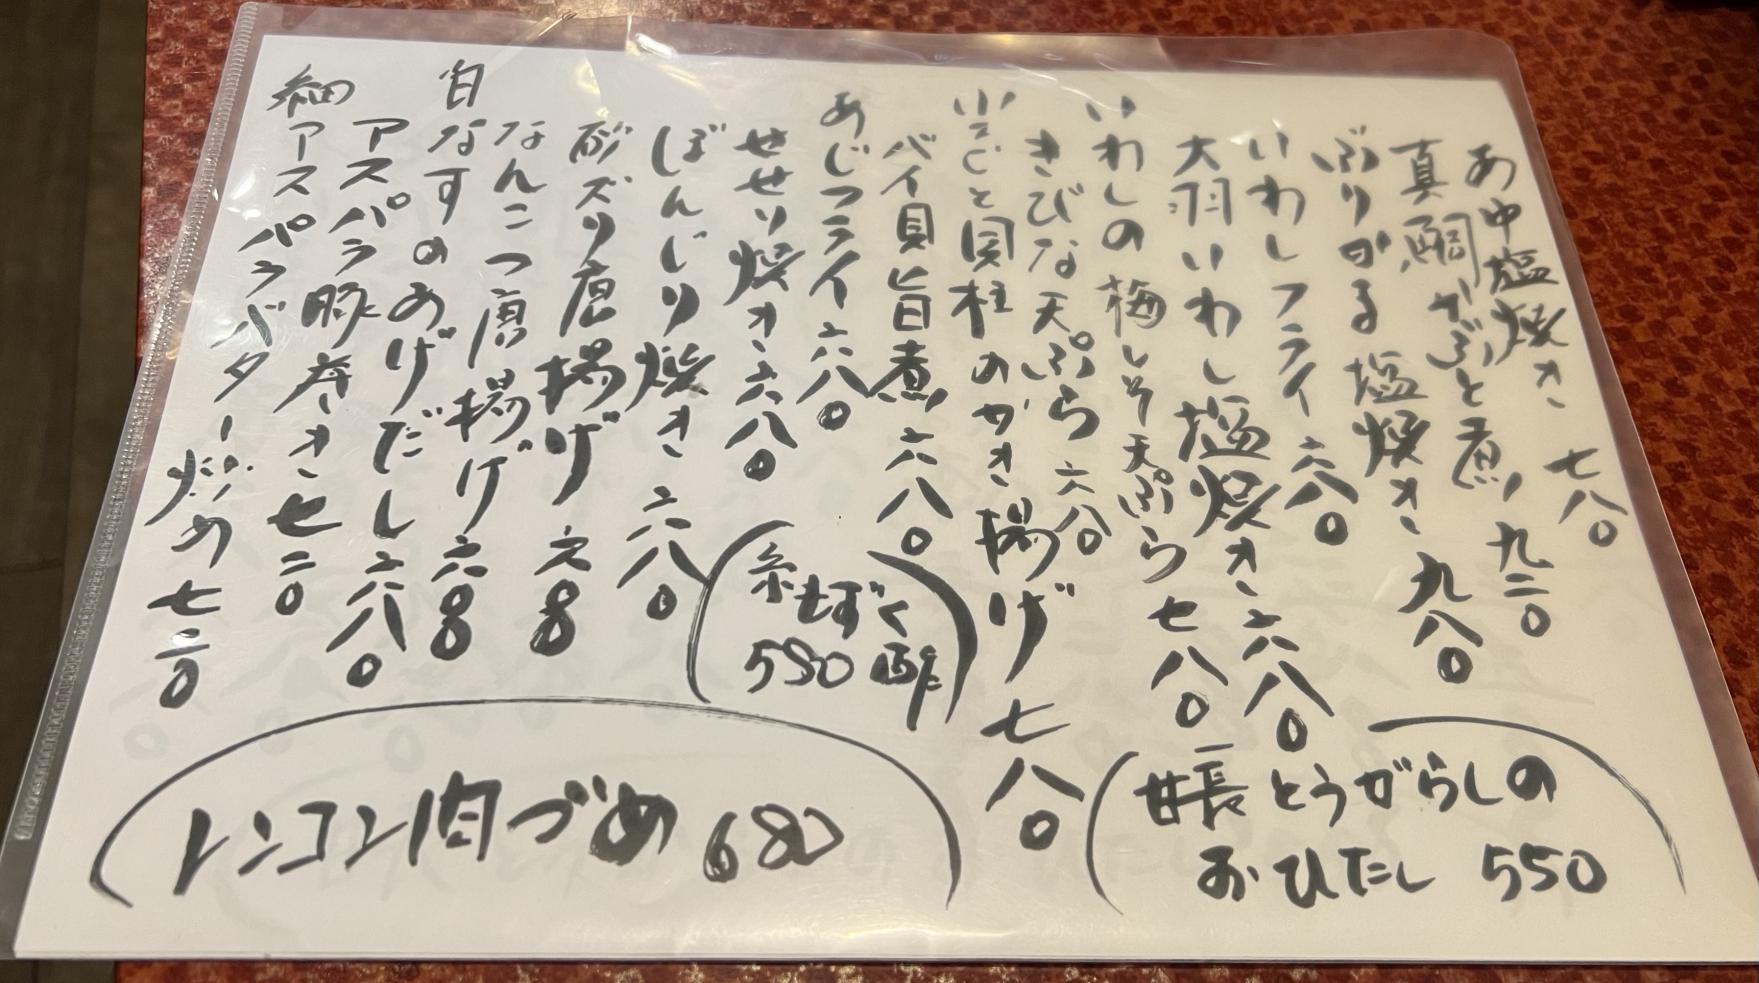 あ中塩焼き 七八〇
真鯛かぶと煮 九二〇
ぶりかま塩焼き 九八〇
いわしフライ 六八〇
大羽いわし塩焼き 六八〇
いわしの梅しそ天ぷら 七八〇
きびな天ぷら 六八〇
小えびと貝柱のかき揚げ 七八〇
バイ貝旨煮 六八〇
あじフライ 六八〇
せせり焼き 六八〇
ぼんじり焼き 六八〇
砂ズリ唐揚げ
なんこつ唐揚げ
白なすのあげだし 六八〇
アスパラ豚巻き 七二〇
細アスパラバター炒め 七二〇
甘長とうがらしの
おひたし 550
糸もずく
550 酢
レンコン肉づめ 680